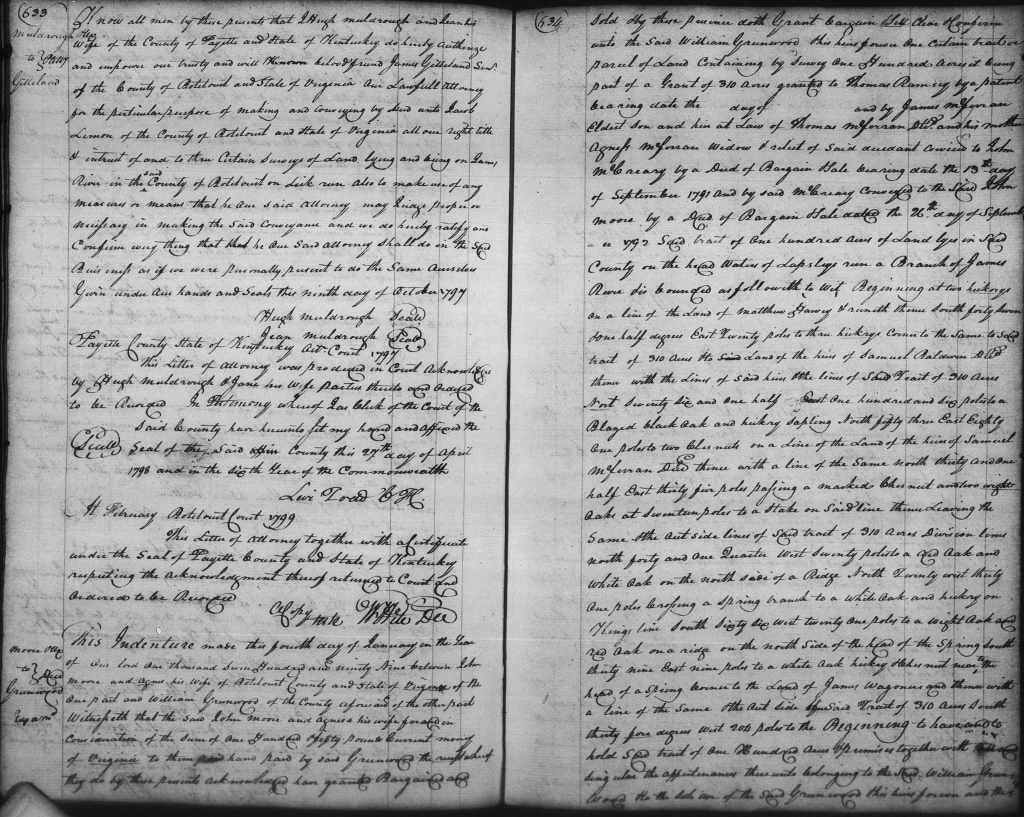 633
Muldrough &c
to } Pattr
Gilleland
Know all men by these presents that I Hugh muldrough and Jean his
Wife of the County of Fayette and State of Kentucky do hereby Authorize
and impowre our trusty and well known belov'd friend James Gilleland Senr.
of the County of Botetourt and State of Virginia Our Lawfull Attorney
for the particular purpose of making and conveying by deed unto Jacob
Lemon of the County of Botetourt and State of Virginia all our right title
& intrest of and to three Certain Surveys of Land lying and being on James
River in the said County of Botetourt on Lick run also to make use of any
measures or means that he our said attorney may Judge proper or
nessisary in making the Said Conveyance and we do hereby ratify and
Confirm every thing that he Our Said attorney Shall do in the Said
Buisiness as if we were personally present to do the Same Ourselves
Given under Our hands and Seals this ninth day of October 1797
Hugh muldrough Seal
Jean muldrough Seal
Fayette County State of Kentucky Oct. Court 1797
This Letter of Attorney was produced in Court Acknowledged
by Hugh muldrough & Jane his Wife parties thereto and Ordered
to be Recorded In Testimony whereof I as Clerk of the Court of the
Said County have hereunto set my hand and affixed the
Seall
Seal of the Said County this 27th day of April
1798 and in the Sixth Year of the Commonwealth
Levi Todd C F C.
At February Botetourt Court 1799
This Letter of Attorney together with a Certificate
under the Seal of Fayette County and State of Kentucky
respecting the Acknowledgment thereof returned to Court and
Ordered to be Recorded
Copy
Teste
Moore &c
to } Deed
Greenwood
This Indenture made this fourth day of January in the Year
of Our lord One thousand Seven Hundred and ninety Nine between John
moore and Agnes his Wife of Botetourt County and State of Virginia of the
One part and William Greenwood of the County aforesaid of the other part
Witnesseth that the Said John moore and Agness his wife for and in
Consideration of the Sum of One Hundred & fifty pounds Current money
of Virginia to them in hand paid by said Greenwood the receipt whereof
they do by these presents acknowledged have granted Bargained and
634
Sold & by these presence doth Grant Bargain & Sell Clear & Confirm
unto the Said William Greenwood & his heirs forever One Certain tract or
parcel of Land Containing by Survey One Hundred Acres it being
part of a Grant of 310 acres granted to Thomas Ramsey by a patent
bearing date the day of and by James McFerran
Eldest Son and heir at Law of Thomas McFerran Decd. and his mother
Agness McFerran Widow & relict of Said deceedant Conveied to John
McCreary by a Deed of Bargain & Sale bearing date the 13th day
of September 1791 and by said McCreary Conveyed to the Said John
moore by a Deed of Bargain & Sale dated the 26th day of Septemb
er 1792 Said tract of One hundred Acres of Land lyes in Said
County on the head Waters of Lapsleys run a Branch of James
River & is bounded as followeth to wit Beginning at two hickorys
on a line of the Land of matthew Harvey & runeth thence South forty seven
& one half degrees East Twenty poles to three hickrys Corner to the Same to Said
tract of 310 Acres & to Land of the heirs of Samuel Baldwin Decd
thence with the Lines of Said heirs & the lines of Said Tract of 310 Acres
Nort Seventy Six and one half East One hundred and Six poles to a
Blazed black Oak and hickory Sapling North fifty three East Eighty
One poles to two Chesnuts on a Line of the Land of the heirs of Samuel
McFerran Decd thence with a line of the Same north thirty and One
half East thirty five poles passing a marked Chesnut and two wight
Oaks at Seventeen poles to a Stake on Said line thence Leaving the
Same & the Out Side lines of Said tract of 310 Acres Division lines
north forty and One Quarter West Seventy poles to a red Oak and
White Oak on the north side of a Ridge North Twenty west thirty
One poles Crossing a Spring branch to a White Oak and hickory on
Kings line South Sixty Six West twenty One poles to a Wight Oak and
red Oak on a ridge on the north Side of the head of the Spring South
thirty nine East nine poles to a White Oak hickory & Chesnut near the
head of a Spring Corner to the Land of James Wagoner and thence with
a line of the Same & the Out Side line Said Tract of 310 Acres South
thirty four degrees West 204 poles to the Beginning to have and to
hold Said tract of One Hundred Acres & premises together with all and
singular the appurtenances there unto belonging to the Said William Green
wood to the Sole use of the Said Greenwood & his heirs forever and the